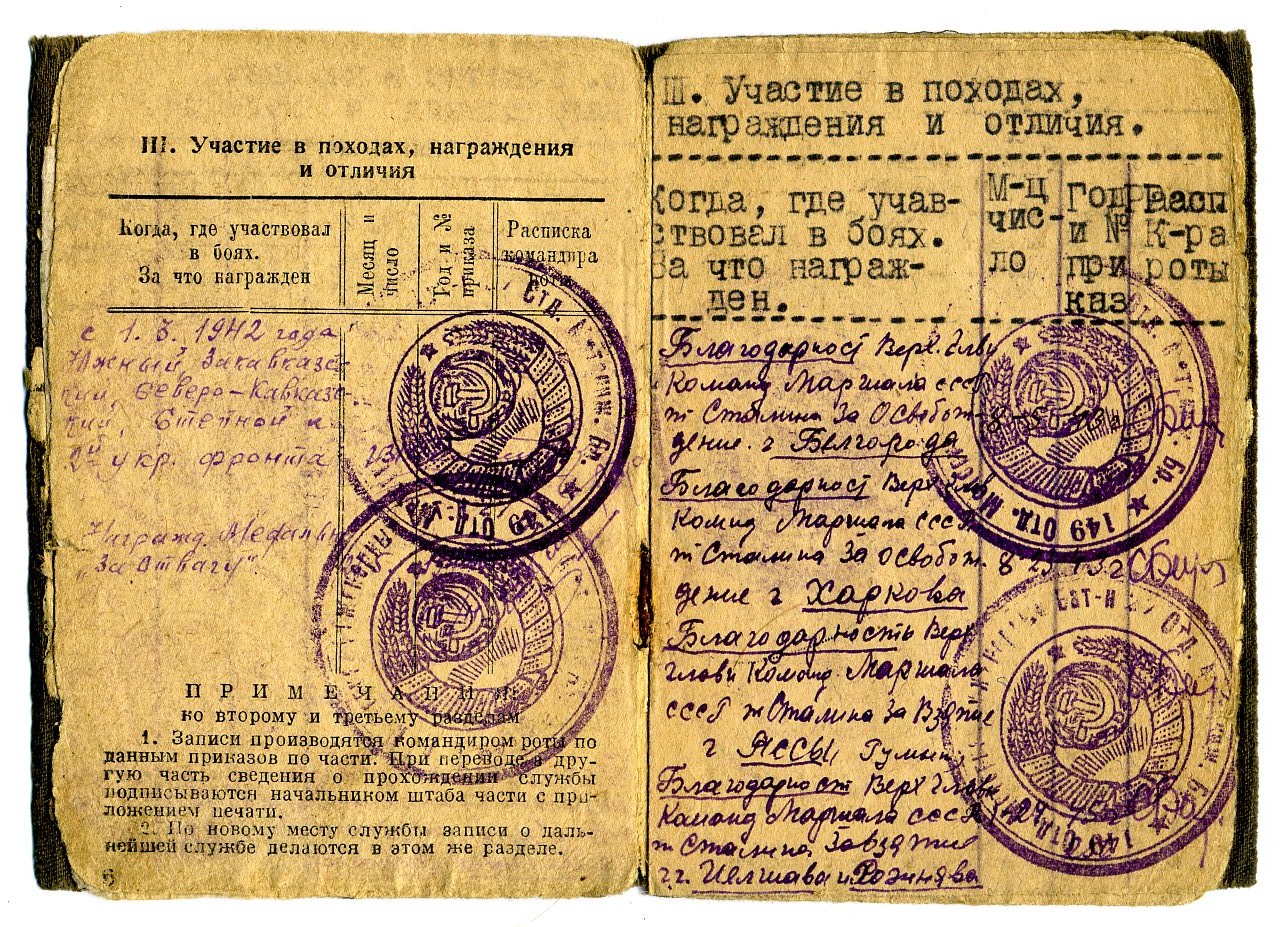 III. Участие в походах, награждения
и отличия
Когда, где участвовал
в боях.
За что награжден
Месяц и
число
Год и №
приказа
Расписка
командира
роты
с 1. 1942 года
Южный, Закавказс-
кий, Северо-Кавказс-
кий, Степной и
2й укр. фронта
23
Награжд. Медалью
„За Отвагу“.
ПРИМЕЧАНИЯ
ко второму и третьему разделам
1. Записи производятся командиром роты по
данным приказов по части. При переводе в дру-
гую часть сведения о прохождении службы
подписываются начальником штаба части с при-
ложением печати.
2. По новому месту службы записи о даль-
нейшей службе делаются в этом же разделе.
6
III. Участие в походах,
награждения и отличия.
Когда, где учав-
ствовал в боях.
За что награж-
ден.
М-ц
чис-
ло
Год
и №
при
каз
Расп
К-ра
роты
Благодарност Верх. Глав
Команд Маршала ссср
т Сталина За Освобож-
дение. г Белгорода
Благодарност Верх Глав
Комнд Маршала ссср
т Сталина За освобож.
дение г Харкова
8 23
Благодарность Верх
глави Команд Маршала
ссср т Сталина За Взятие
г Яссы Румын
Благодарност Верх Главн
Команд Маршала ссср
т Сталина За взятие
г г. Иелшава и Рожнява
149 Отд.
149 Отд.
149 Отд.